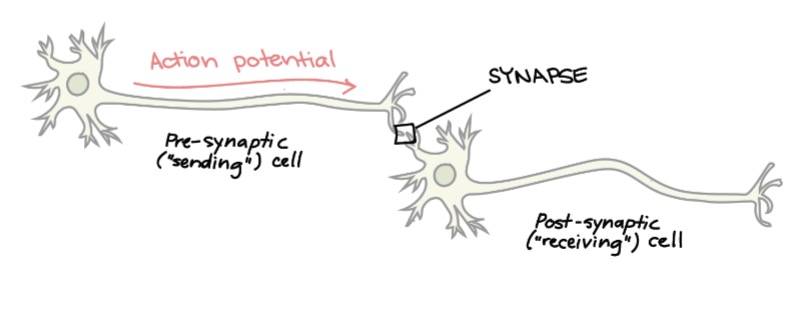 Action potential
SYNAPSE
Pre-synaptic
("sending") cell
Post-synaptic
("receiving") cell